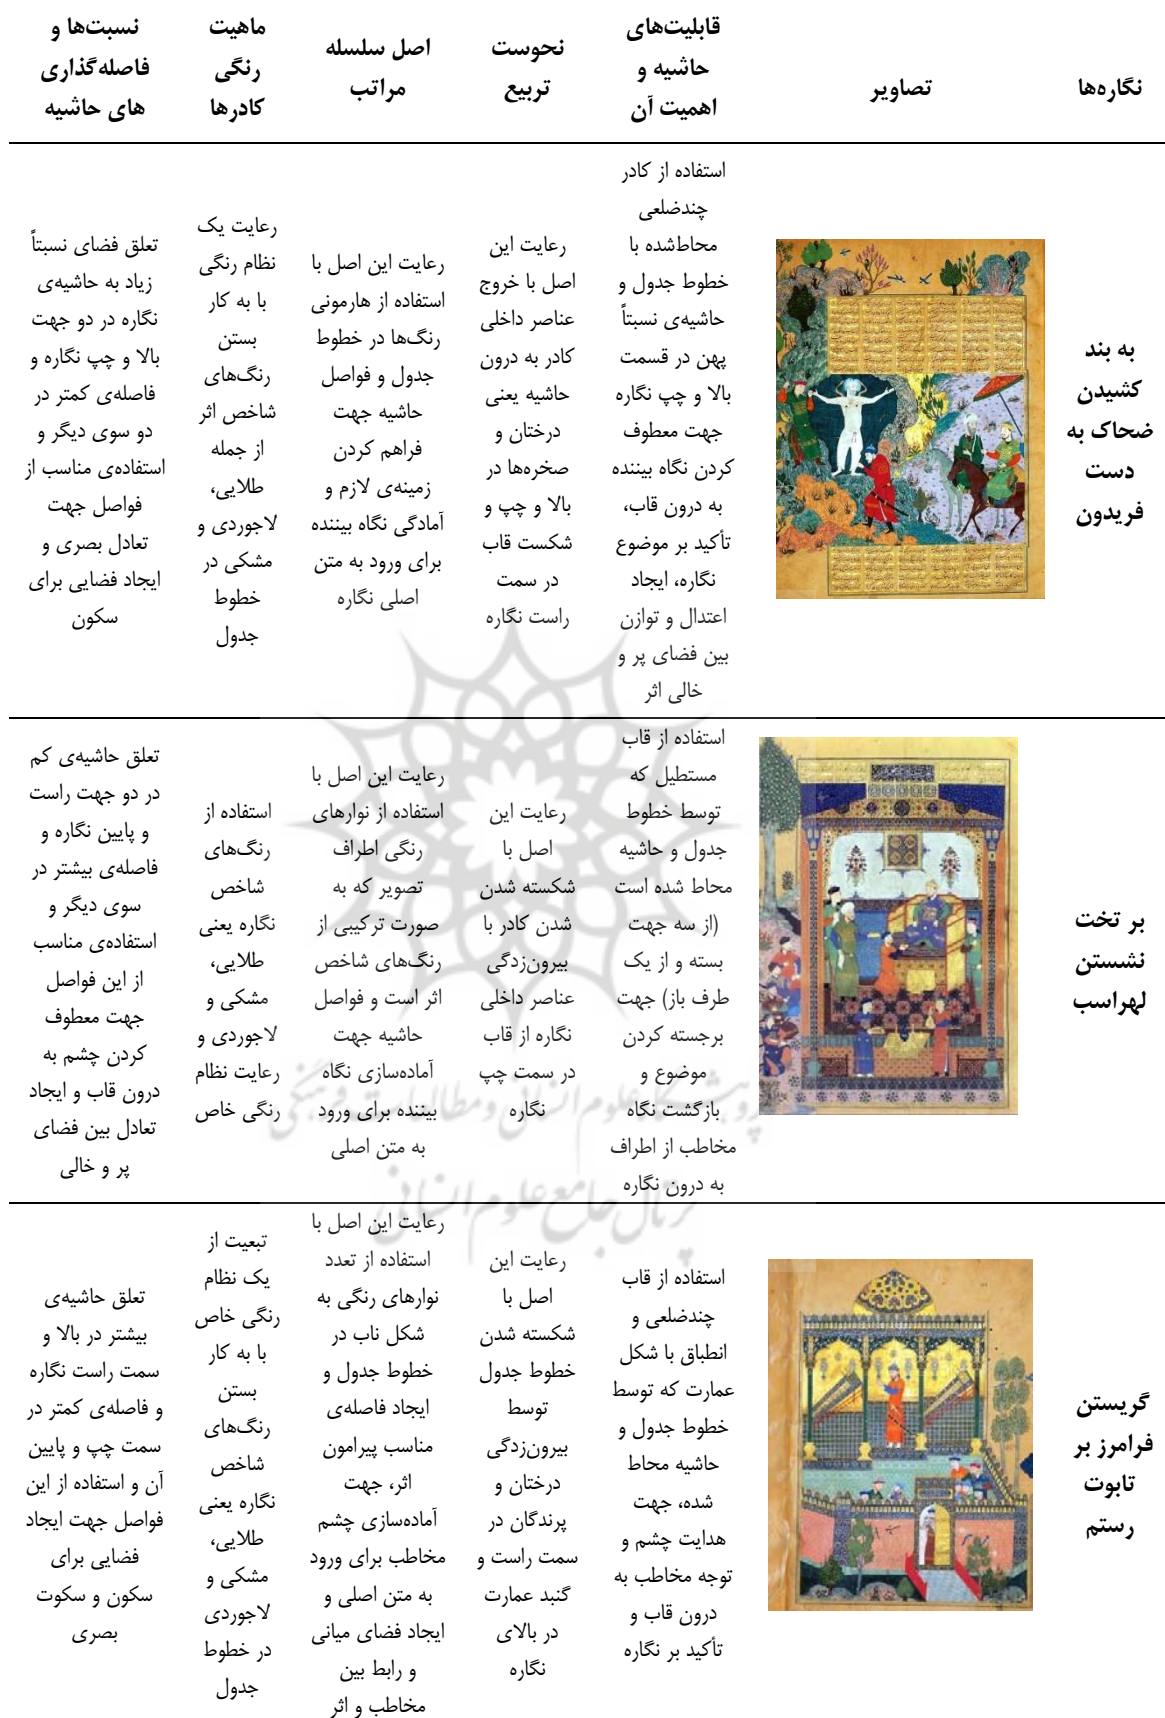 نگاره‌ها
تصاویر
قابلیت‌های
حاشیه و
اهمیت آن
نحوست
تربیع
اصل سلسله
مراتب
ماهیت
رنگی
کادرها
نسبت‌ها و
فاصله‌گذاری
های حاشیه
به بند
کشیدن
ضحاک به
دست
فریدون
استفاده از کادر
چندضلعی
محاط‌شده با
خطوط جدول و
حاشیه‌ی نسبتاً
پهن در قسمت
بالا و چپ نگاره
جهت معطوف
کردن نگاه بیننده
به درون قاب،
تأکید بر موضوع
نگاره، ایجاد
اعتدال و توازن
بین فضای پر و
خالی اثر
رعایت این
اصل با خروج
عناصر داخلی
کادر به درون
حاشیه یعنی
درختان و
صخره‌ها در
بالا و چپ و
شکست قاب
در سمت
راست نگاره
رعایت این اصل با
استفاده از هارمونی
رنگ‌ها در خطوط
جدول و فواصل
حاشیه جهت
فراهم کردن
زمینه‌ی لازم و
آمادگی نگاه بیننده
برای ورود به متن
اصلی نگاره
رعایت یک
نظام رنگی
با به کار
بستن
رنگ‌های
شاخص اثر
از جمله
طلایی،
لاجوردی و
مشکی در
خطوط
جدول
تعلق فضای نسبتاً
زیاد به حاشیه‌ی
نگاره در دو جهت
بالا و چپ نگاره و
فاصله‌ی کمتر در
دو سوی دیگر و
استفاده‌ی مناسب از
فواصل جهت
تعادل بصری و
ایجاد فضایی برای
سکون
بر تخت
نشستن
لهراسب
استفاده از قاب
مستطیل که
توسط خطوط
جدول و حاشیه
محاط شده است
(از سه جهت
بسته و از یک
طرف باز) جهت
برجسته کردن
موضوع و
بازگشت نگاه
مخاطب از اطراف
به درون نگاره
رعایت این
اصل با
شکسته شدن
شدن کادر با
بیرون‌زدگی
عناصر داخلی
نگاره از قاب
در سمت چپ
نگاره
رعایت این اصل با
استفاده از نوارهای
رنگی اطراف
تصویر که به
صورت ترکیبی از
رنگ‌های شاخص
اثر است و فواصل
حاشیه جهت
آماده‌سازی نگاه
بیننده برای ورود
به متن اصلی
استفاده از
رنگ‌های
شاخص
نگاره یعنی
طلایی،
مشکی و
لاجوردی و
رعایت نظام
رنگی خاص
تعلق حاشیه‌ی کم
در دو جهت راست
و پایین نگاره و
فاصله‌ی بیشتر در
سوی دیگر و
استفاده‌ی مناسب
از این فواصل
جهت معطوف
کردن چشم به
درون قاب و ایجاد
تعادل بین فضای
پر و خالی
گریستن
فرامرز بر
تابوت
رستم
استفاده از قاب
چندضلعی و
انطباق با شکل
عمارت که توسط
خطوط جدول و
حاشیه محاط
شده، جهت
هدایت چشم و
توجه مخاطب به
درون قاب و
تأکید بر نگاره
رعایت این
اصل با
شکسته شدن
خطوط جدول
توسط
بیرون‌زدگی
درختان و
پرندگان در
سمت راست و
گنبد عمارت
در بالای
نگاره
رعایت این اصل با
استفاده از تعدد
نوارهای رنگی به
شکل ناب در
خطوط جدول و
ایجاد فاصله‌ی
مناسب پیرامون
اثر، جهت
آماده‌سازی چشم
مخاطب برای ورود
به متن اصلی و
ایجاد فضای میانی
و رابط بین
مخاطب و اثر
تبعیت از
یک نظام
رنگی خاص
با به کار
بستن
رنگ‌های
شاخص
نگاره یعنی
طلایی،
مشکی و
لاجوردی
در خطوط
جدول
تعلق حاشیه‌ی
بیشتر در بالا و
سمت راست نگاره
و فاصله‌ی کمتر در
سمت چپ و پایین
آن و استفاده از این
فواصل جهت ایجاد
فضایی برای
سکون و سکوت
بصری
پژوهشگاه علوم انسانی و مطالعات فرهنگی
پرتال جامع علوم انسانی